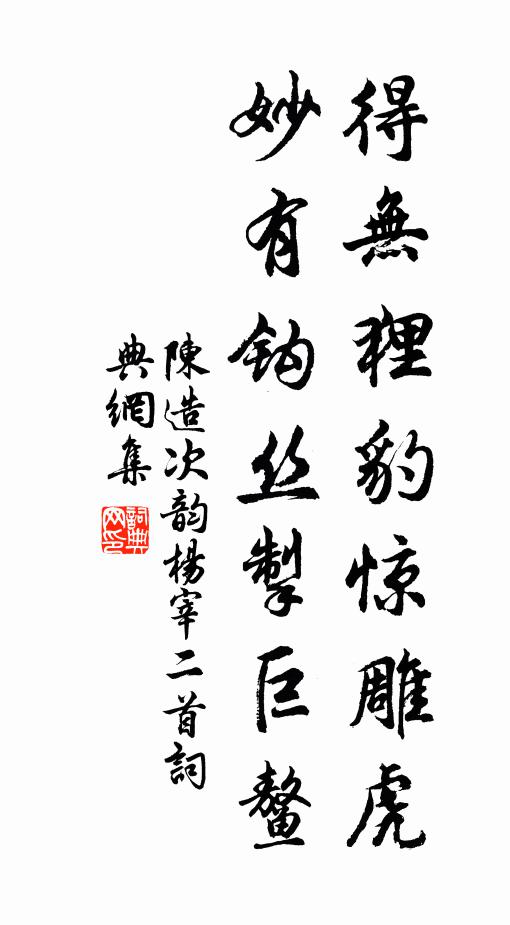 得無狸豹惊雕虎
妙有鈎丝掣巨鰲
陳造次韵楊宰二首詞
典網集
詞典網印